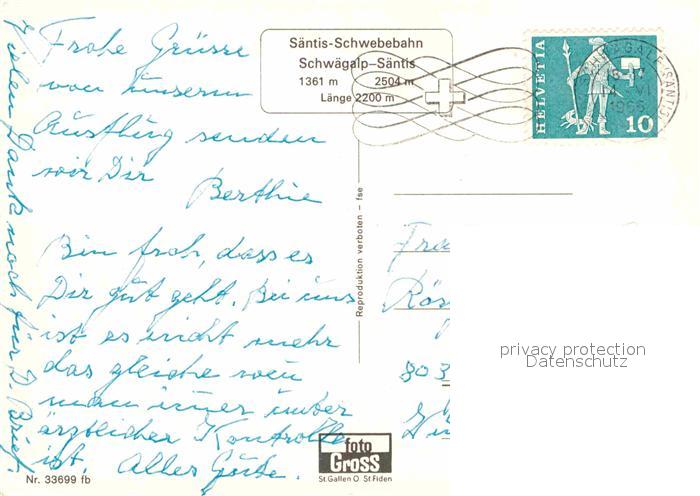 Frohe Grüsse
von unserm
Ausflug senden
wir Dir Berthie
Bin froh, dass es
Dir gut geht. Bei uns
ist es nicht mehr
das gleiche wen
man imer unter
ärztlicher Kontrolle
ist. Alles Gute.
Vielen Dank noch für D. Brief.
Säntis-Schwebebahn
Schwägalp–Säntis
1361 m 2504 m
Länge 2200 m
HELVETIA
10
Reproduktion verboten – fse
Rös
803
privacy protection
Datenschutz
foto
Gross
St. Gallen O. St. Fiden
Nr. 33699 fb